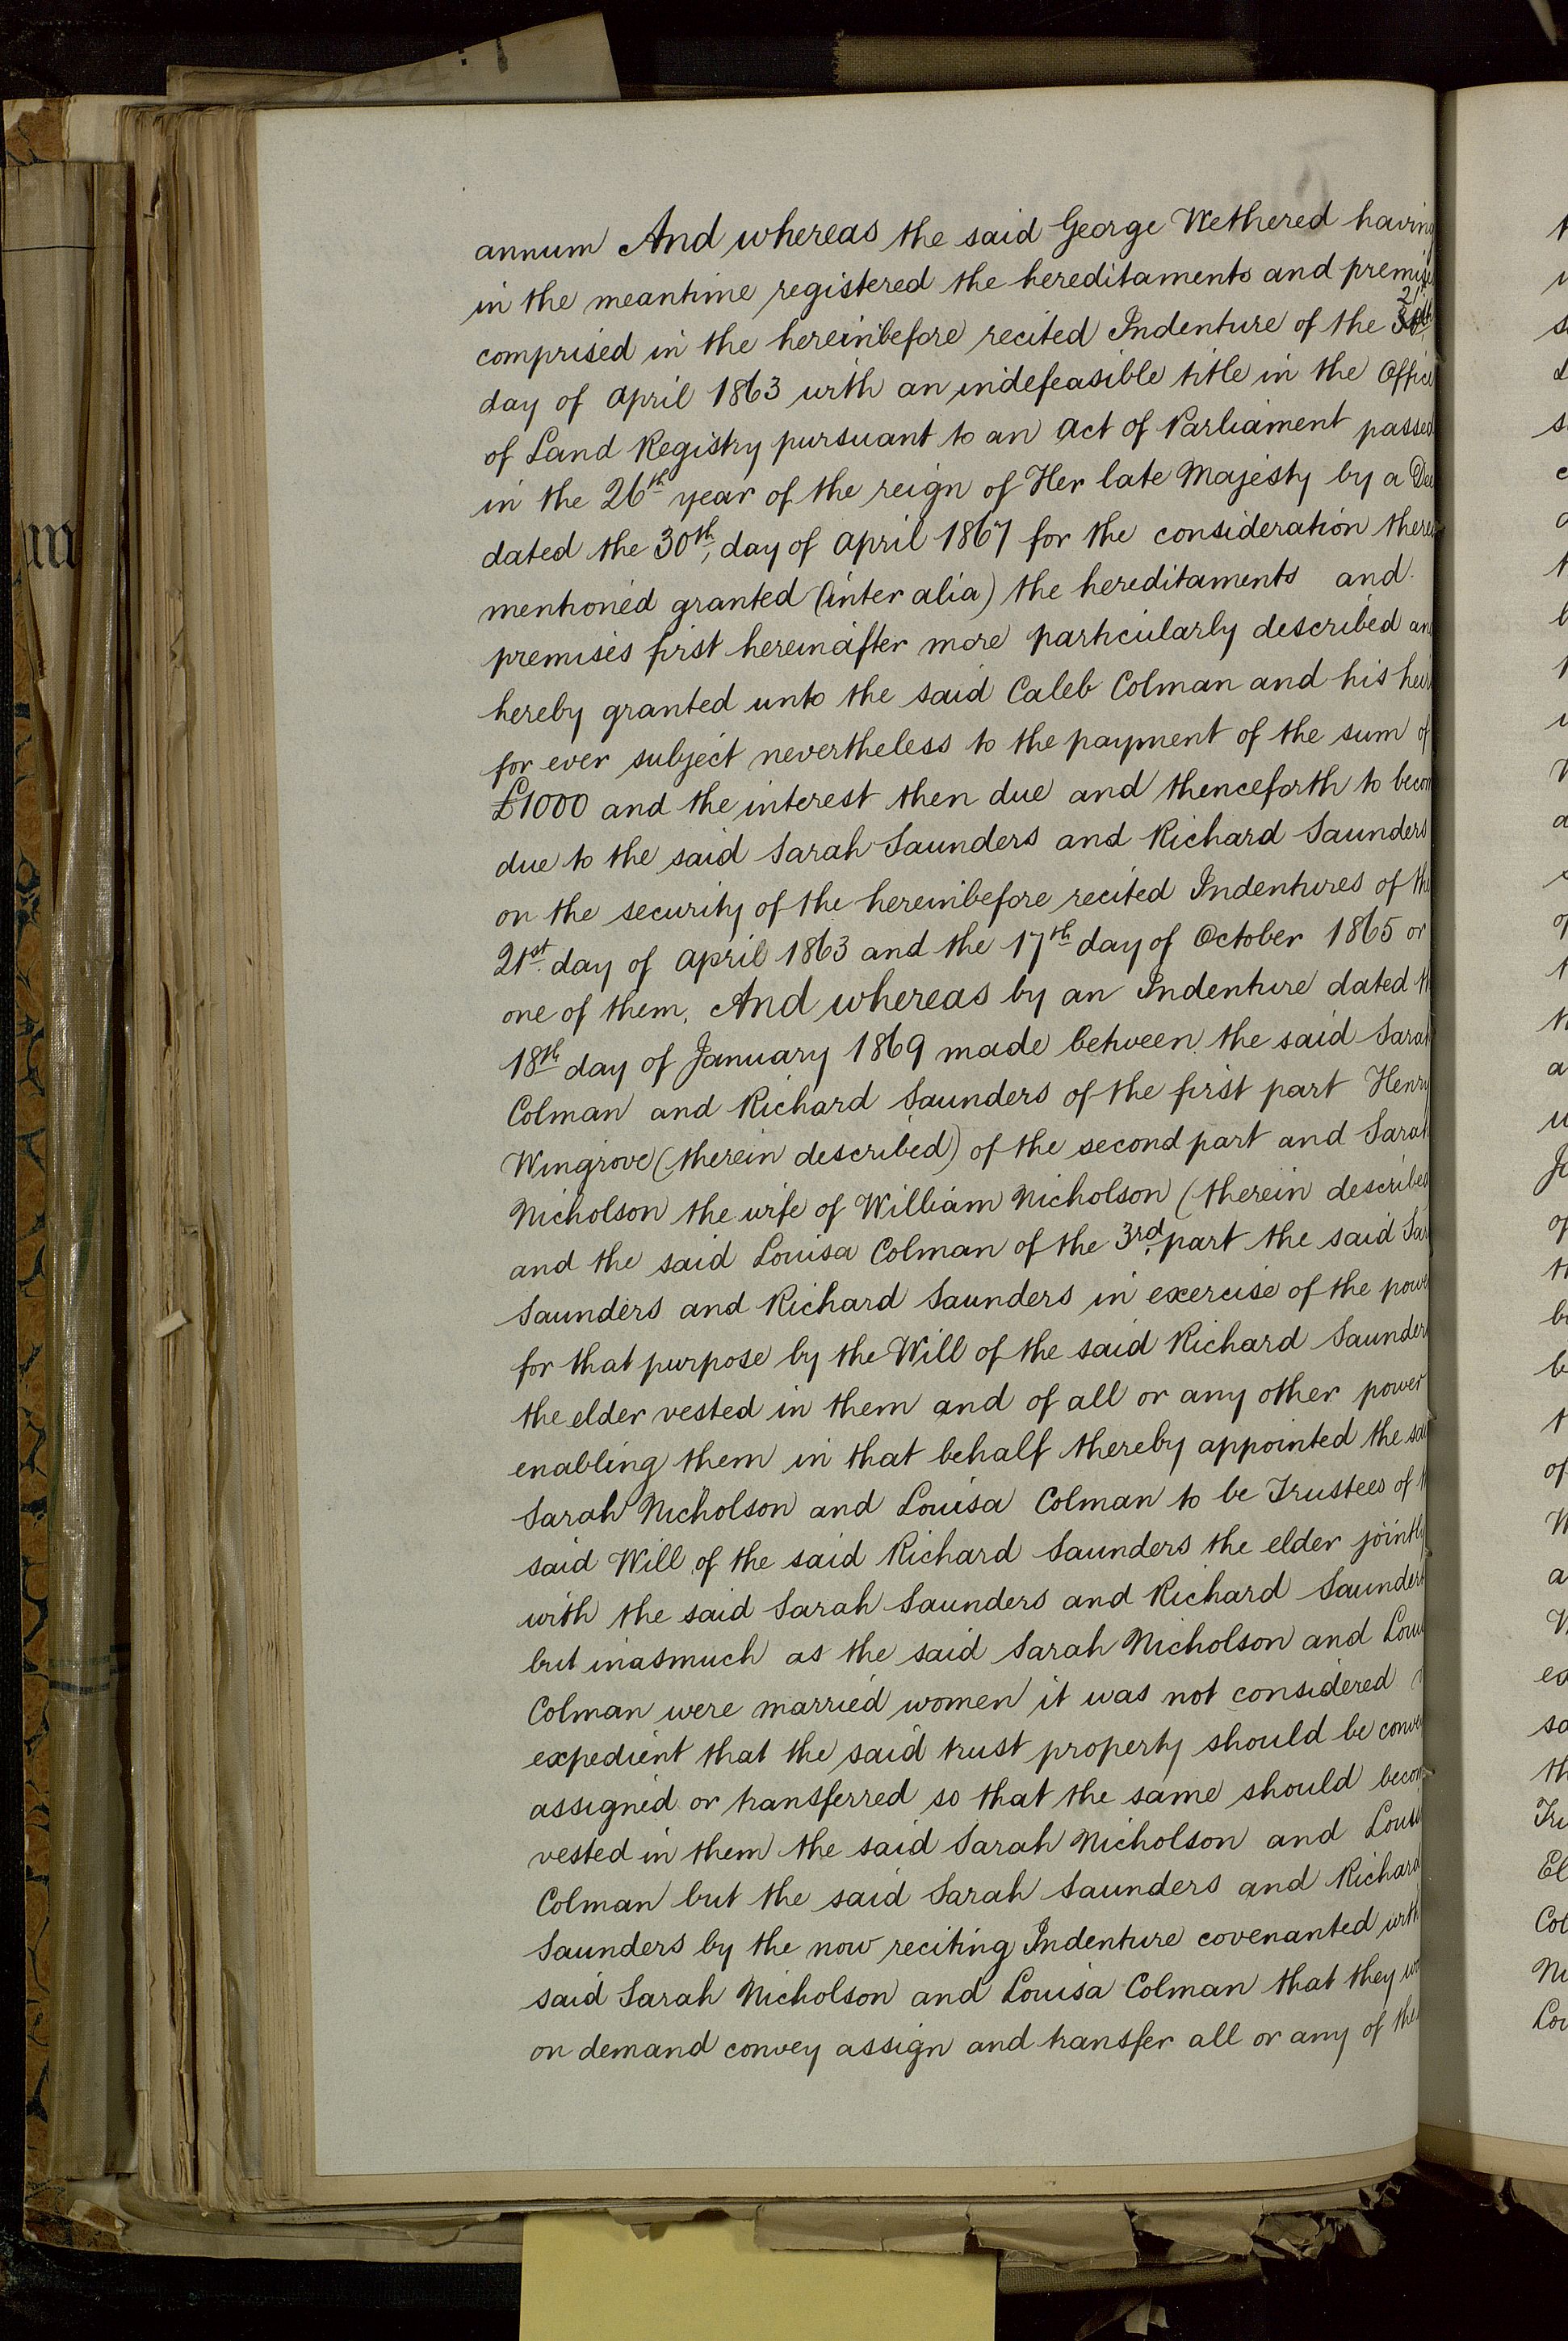 annum And whereas the said George Wethered having
in the meantime registered the hereditaments and premise
comprised in the hereinbefore recited Indenture of the 21st
day of April 1863 with an indefeasible title in the Office
of Land Registry pursuant to an Act of Parliament passed
in the 26th year of the reign of Her late Majesty by a Dee
dated the 30th, day of April 1867 for the consideration there
mentioned granted (inter alia) the hereditaments and
premises first hereinafter more particularly described and
hereby granted unto the said Caleb Colman and his heirs
for ever subject nevertheless to the payment of the sum of
£1000 and the interest then due and thenceforth to becom
due to the said Sarah Saunders and Richard Saunders
on the security of the hereinbefore recited Indentures of the
21st. day of April 1863 and the 17th day of October 1865 or
one of them. And whereas by an Indenture dated th
18th day of January 1869 made between the said Sarah
Colman and Richard Saunders of the first part Henry
Wingrove (therein described) of the second part and Sarah
Nicholson the wife of William Nicholson (therein described
and the said Louisa Colman of the 3rd. part the said Sar
Saunders and Richard Saunders in exercise of the power
for that purpose by the Will of the said Richard Saunders
the elder vested in them and of all or any other power
enabling them in that behalf thereby appointed the sai
Sarah Nicholson and Louisa Colman to be Trustees of t
said Will of the said Richard Saunders the elder jointly
with the said Sarah Saunders and Richard Saunders
but inasmuch as the said Sarah Nicholson and Loui
Colman were married women it was not considered
expedient that the said trust property should be conve
assigned or transferred so that the same should becom
vested in them the said Sarah Nicholson and Louis
Colman but the said Sarah Saunders and Richard
Saunders by the now reciting Indenture covenanted with
said Sarah Nicholson and Louisa Colman that they wo
on demand convey assign and transfer all or any of the